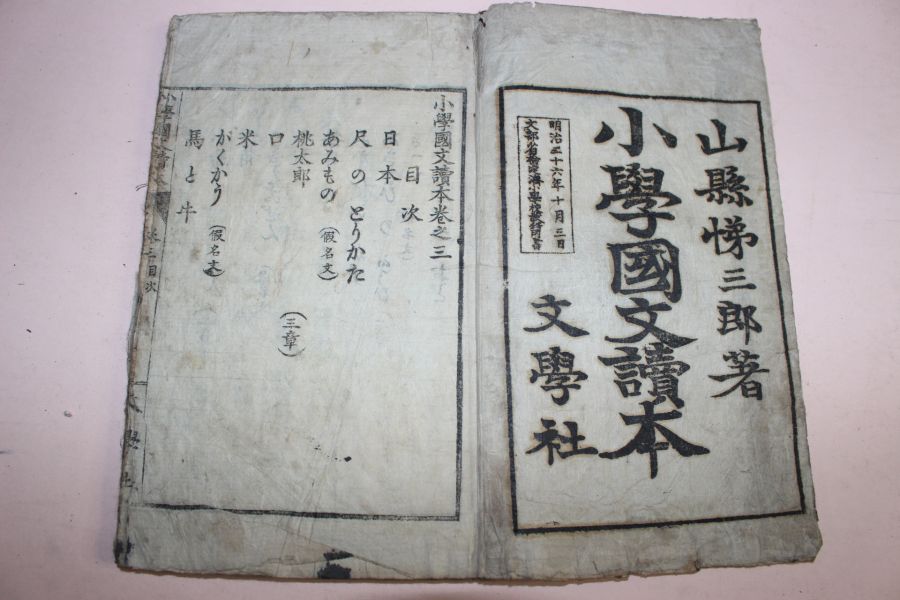 山縣悌三郎著
小學國文讀本
明治三十六年十月三日
文部省檢定濟小學校教科用書
文學社
小學國文讀本卷之三
目次
日本
尺のとりかた
あみもの(假名文)
桃太郎
口(三章)
米
がくかう(假名文)
馬と牛
小學國文讀本
卷三目次
文學社